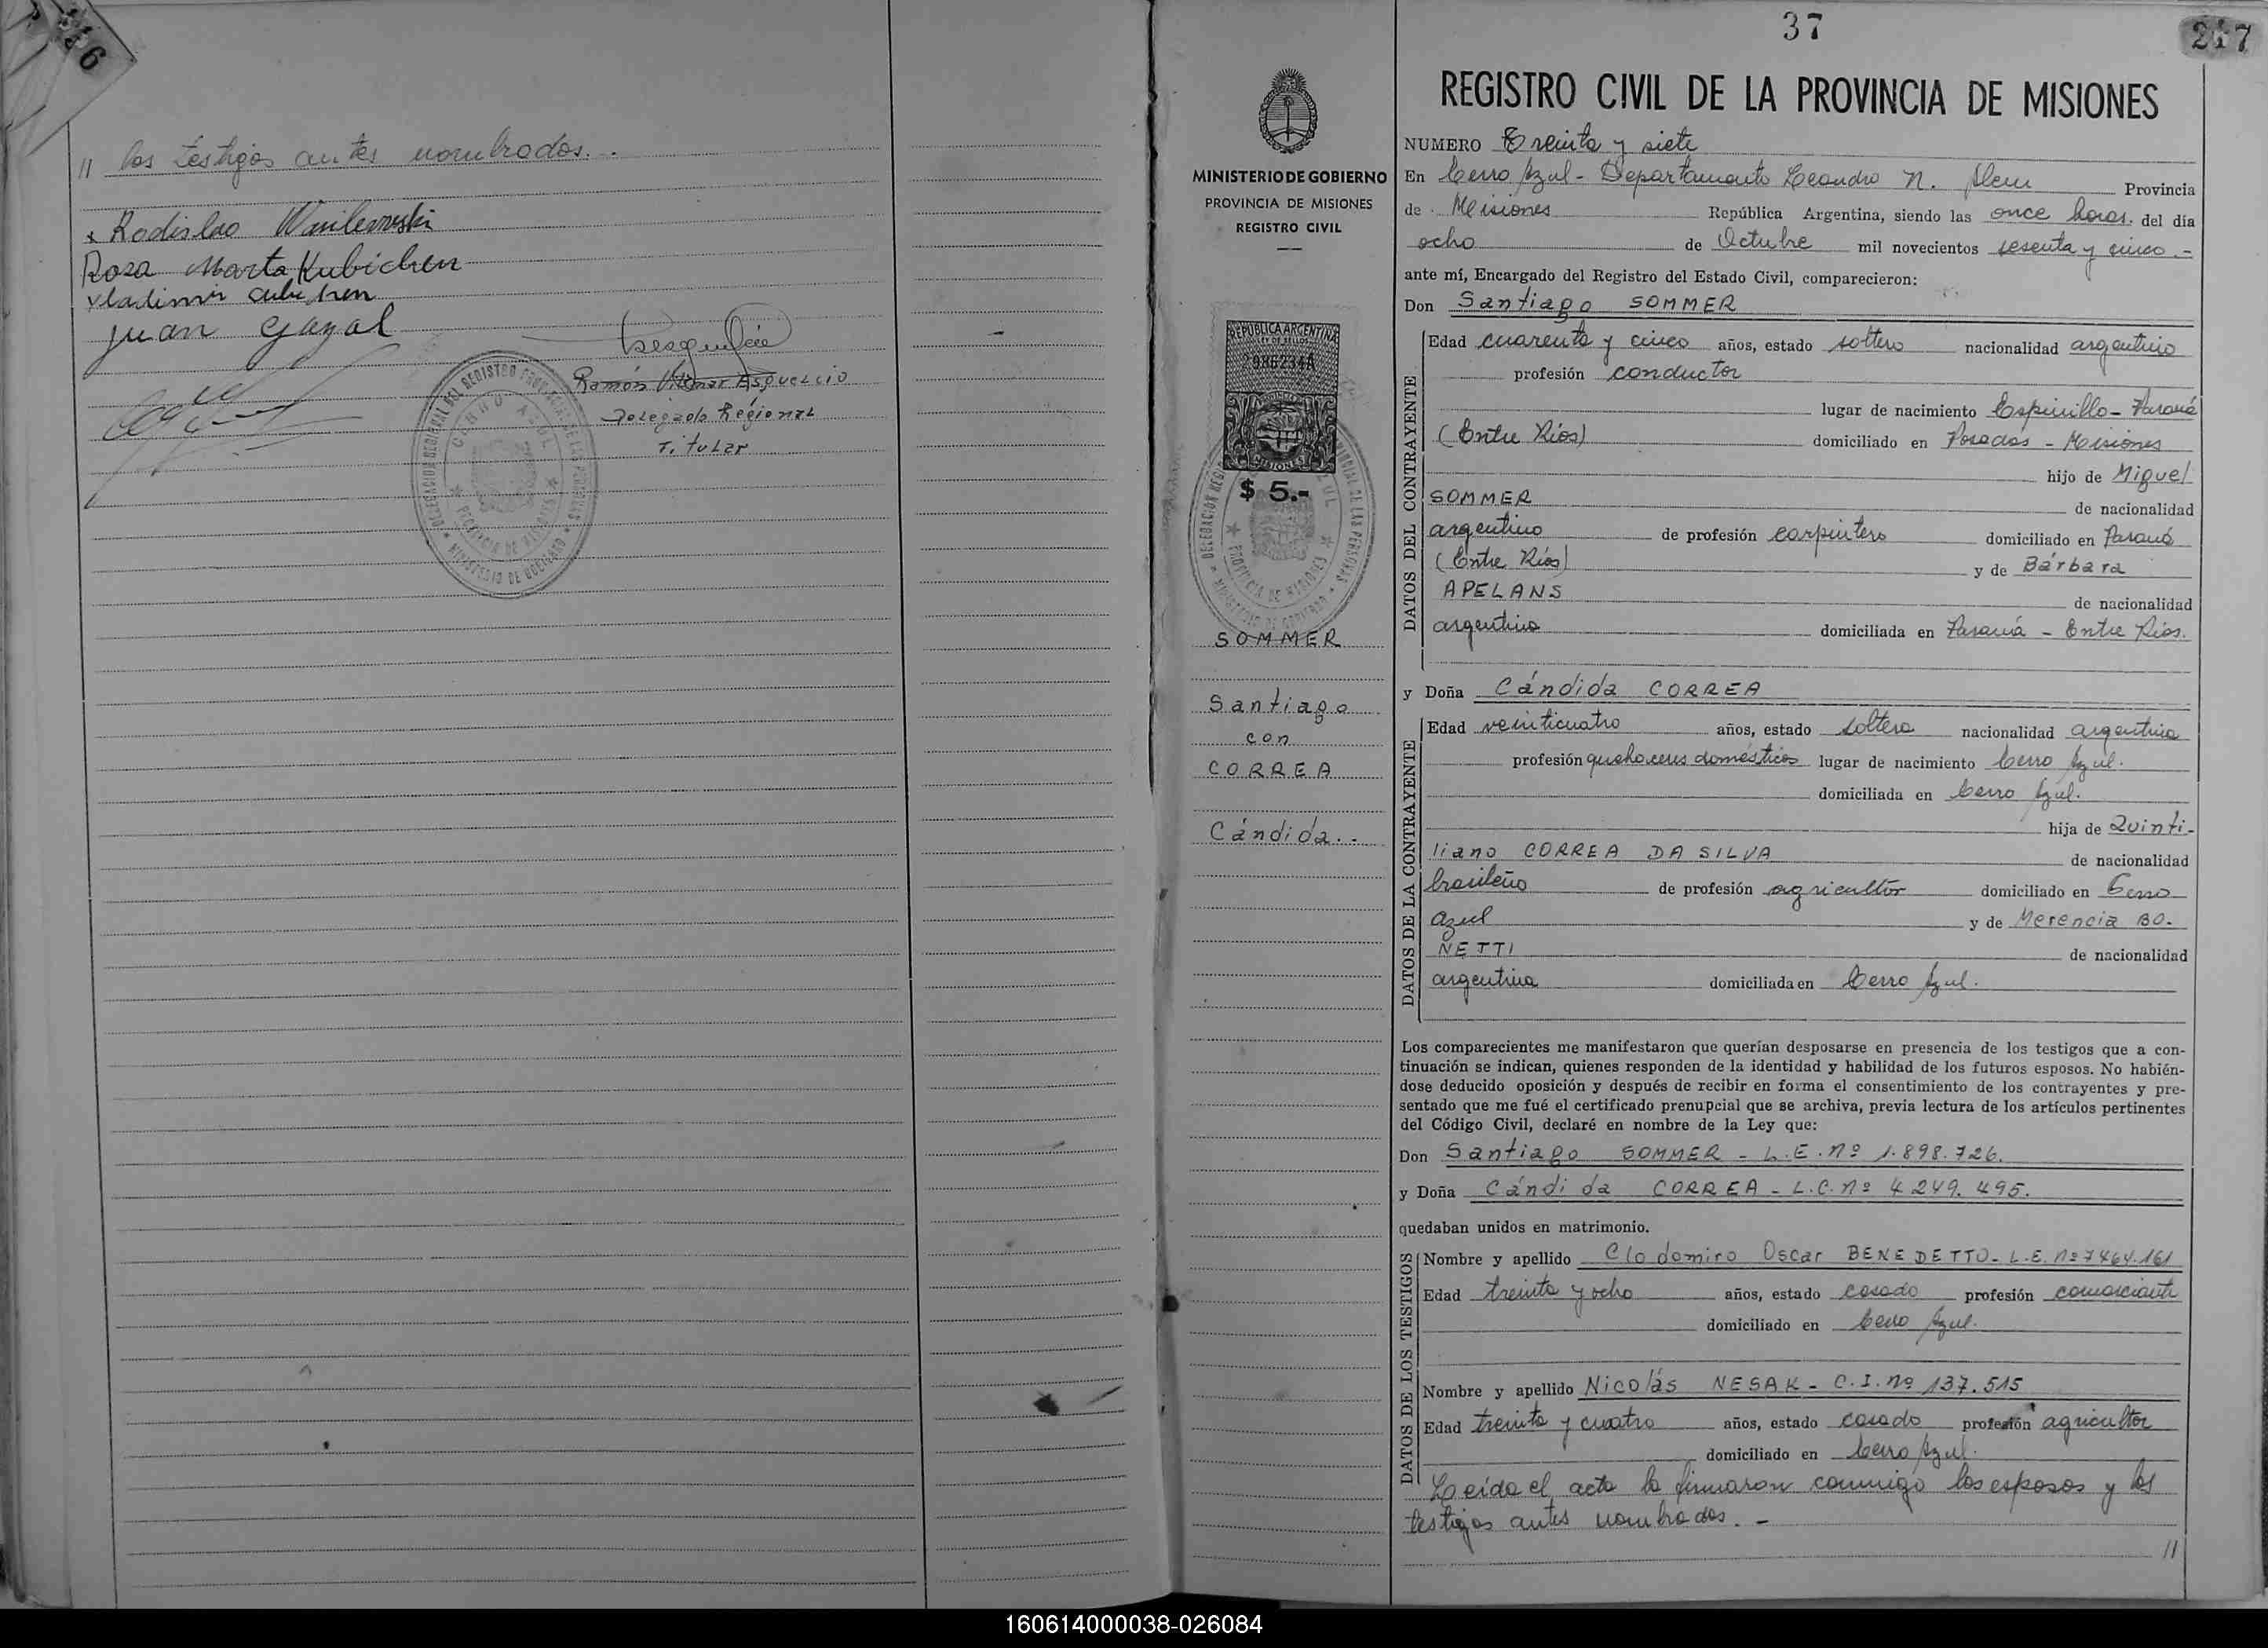 246
// los testigos antes nombrados. .
x Radislao Wasilewski
Rosa Marta Kubichen
Vladimir Cubichen
Juan Gazal
Ramón Vilmar Esquercio
Delegado Regional
Titular
37
247
REGISTRO CIVIL DE LA PROVINCIA DE MISIONES
MINISTERIO DE GOBIERNO
PROVINCIA DE MISIONES
REGISTRO CIVIL
REPUBLICA ARGENTINA
LEY DE SELLOS
MISIONES
$ 5.-
SOMMER
Santiago
con
CORREA
Cándida.-
NUMERO Treinta y siete
En Cerro Azul - Departamento Leandro N. Alem Provincia
de Misiones República Argentina, siendo las once horas. del día
ocho de Octubre mil novecientos sesenta y cinco.-
ante mí, Encargado del Registro del Estado Civil, comparecieron:
Don Santiago SOMMER
DATOS DEL CONTRAYENTE
Edad cuarenta y cinco años, estado soltero nacionalidad argentino
profesión conductor
lugar de nacimiento Espinillo - Paraná
(Entre Ríos) domiciliado en Posadas - Misiones
hijo de Miguel
SOMMER de nacionalidad
argentino de profesión carpintero domiciliado en Paraná
(Entre Ríos) y de Bárbara
APELANS de nacionalidad
argentina domiciliada en Paraná - Entre Ríos.
y Doña Cándida CORREA
DATOS DE LA CONTRAYENTE
Edad veinticuatro años, estado soltera nacionalidad argentina
profesión quehaceres domésticos lugar de nacimiento Cerro Azul.
domiciliada en Cerro Azul.
hija de Quinti-
liano CORREA DA SILVA de nacionalidad
brasileño de profesión agricultor domiciliado en Cerro
Azul y de Merencia BO-
NETTI de nacionalidad
argentina domiciliada en Cerro Azul.
Los comparecientes me manifestaron que querían desposarse en presencia de los testigos que a con-
tinuación se indican, quienes responden de la identidad y habilidad de los futuros esposos. No habién-
dose deducido oposición y después de recibir en forma el consentimiento de los contrayentes y pre-
sentado que me fué el certificado prenupcial que se archiva, previa lectura de los artículos pertinentes
del Código Civil, declaré en nombre de la Ley que:
Don Santiago SOMMER - L.E. nº 1.898.726.
y Doña Cándida CORREA - L.C. nº 4.249.495.
quedaban unidos en matrimonio.
DATOS DE LOS TESTIGOS
Nombre y apellido Clodomiro Oscar BENEDETTO - L.E. nº 7464.161
Edad treinta y ocho años, estado casado profesión comerciante
domiciliado en Cerro Azul.
Nombre y apellido Nicolás NESAK - C.I. nº 137.515
Edad treinta y cuatro años, estado casado profesión agricultor
domiciliado en Cerro Azul.
Leída el acta la firmaron conmigo los esposos y los
testigos antes nombrados. -
//
160614000038-026084